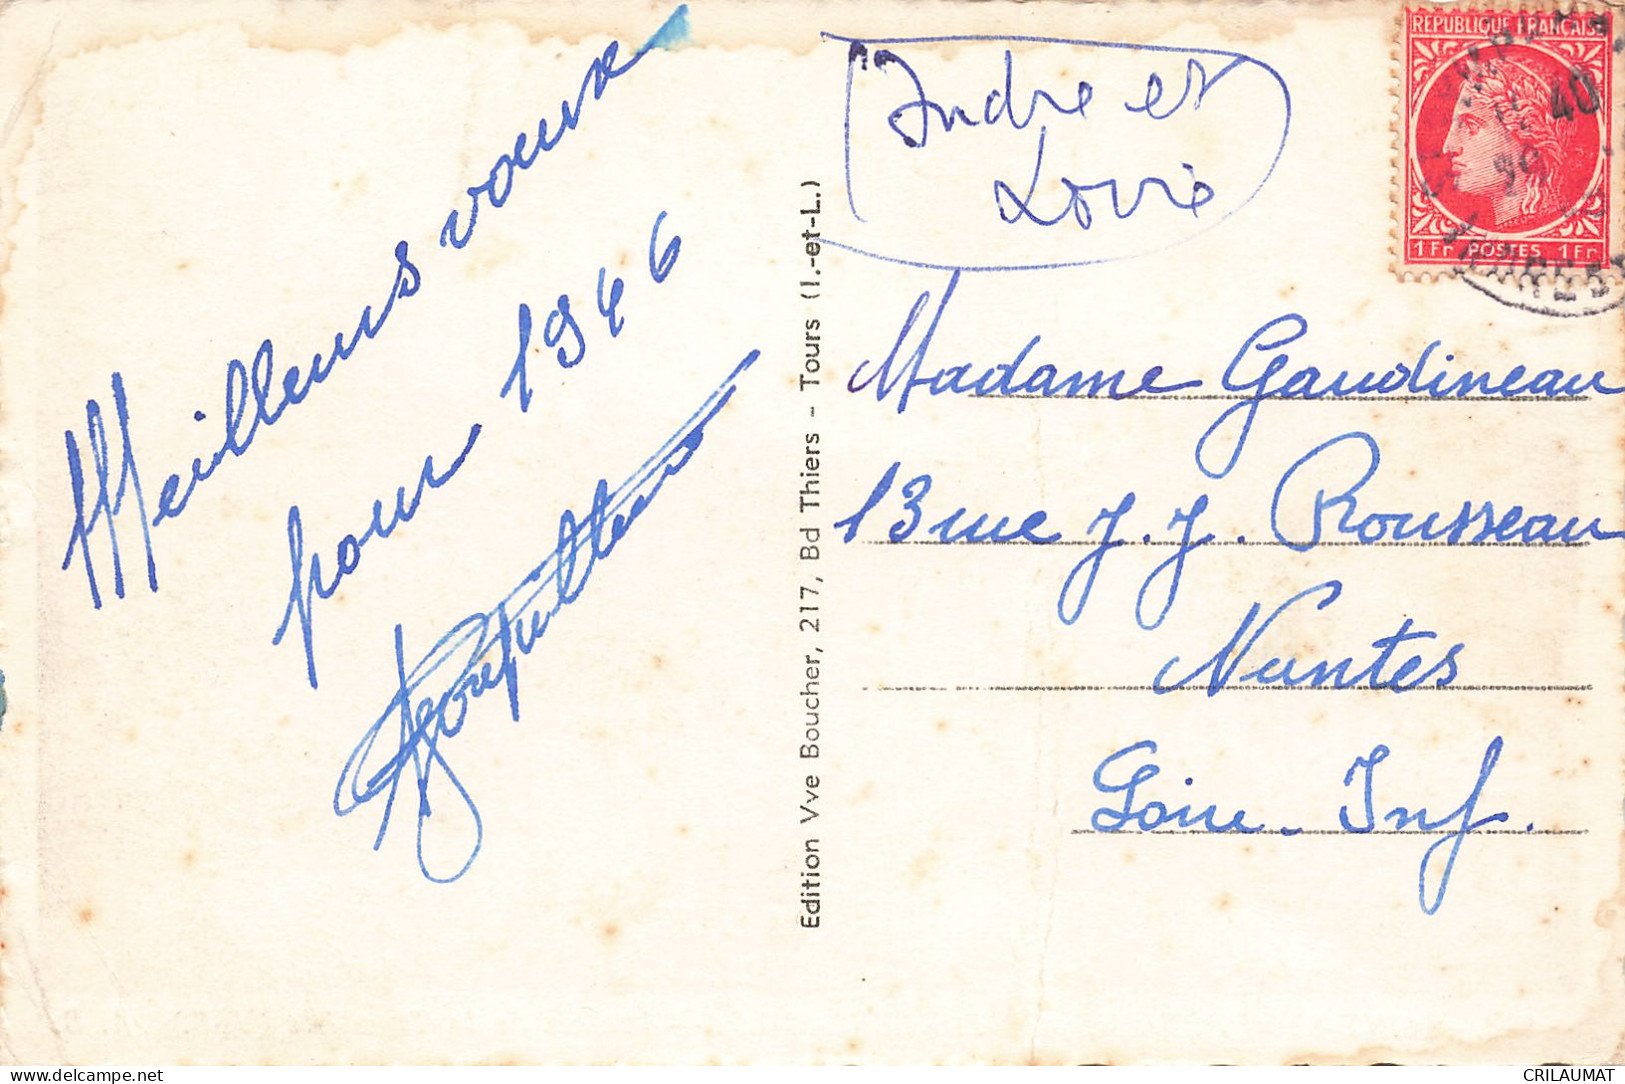 Meilleurs voeux
pour 1946
Indre et
Loire
REPUBLIQUE FRANÇAISE
40
29
1 Fr POSTES 1 Fr
Madame Gaudineau
13 rue J. J. Rousseau
Nantes
Loire-Inf.
Edition Vve Boucher, 217, Bd Thiers - Tours (I.-et-L.)
delcampe.net
CRILAUMAT